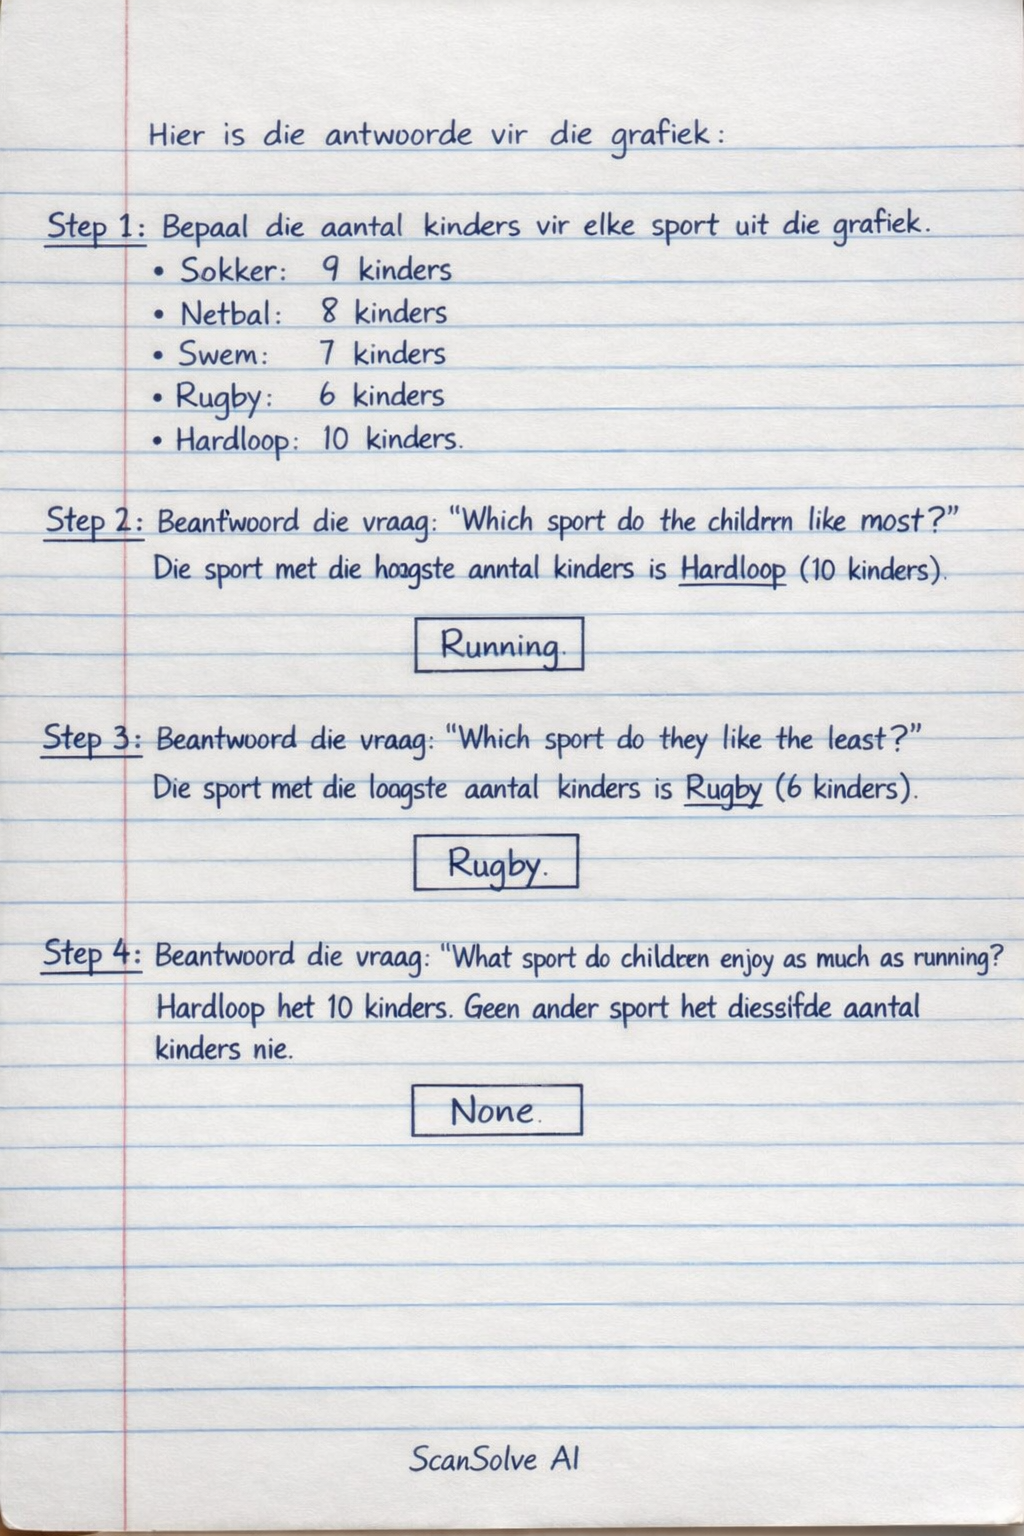 Hier is die antwoorde vir die grafiek:
Step 1: Bepaal die aantal kinders vir elke sport uit die grafiek.
• Sokker: 9 kinders
• Netbal: 8 kinders
• Swem: 7 kinders
• Rugby: 6 kinders
• Hardloop: 10 kinders.
Step 2: Beantwoord die vraag: "Which sport do the childrrn like most?"
Die sport met die hoagste anntal kinders is Hardloop (10 kinders).
Running.
Step 3: Beantwoord die vraag: "Which sport do they like the least?"
Die sport met die loagste aantal kinders is Rugby (6 kinders).
Rugby.
Step 4: Beantwoord die vraag: "What sport do children enjoy as much as running?
Hardloop het 10 kinders. Geen ander sport het diessifde aantal
kinders nie.
None.
ScanSolve AI